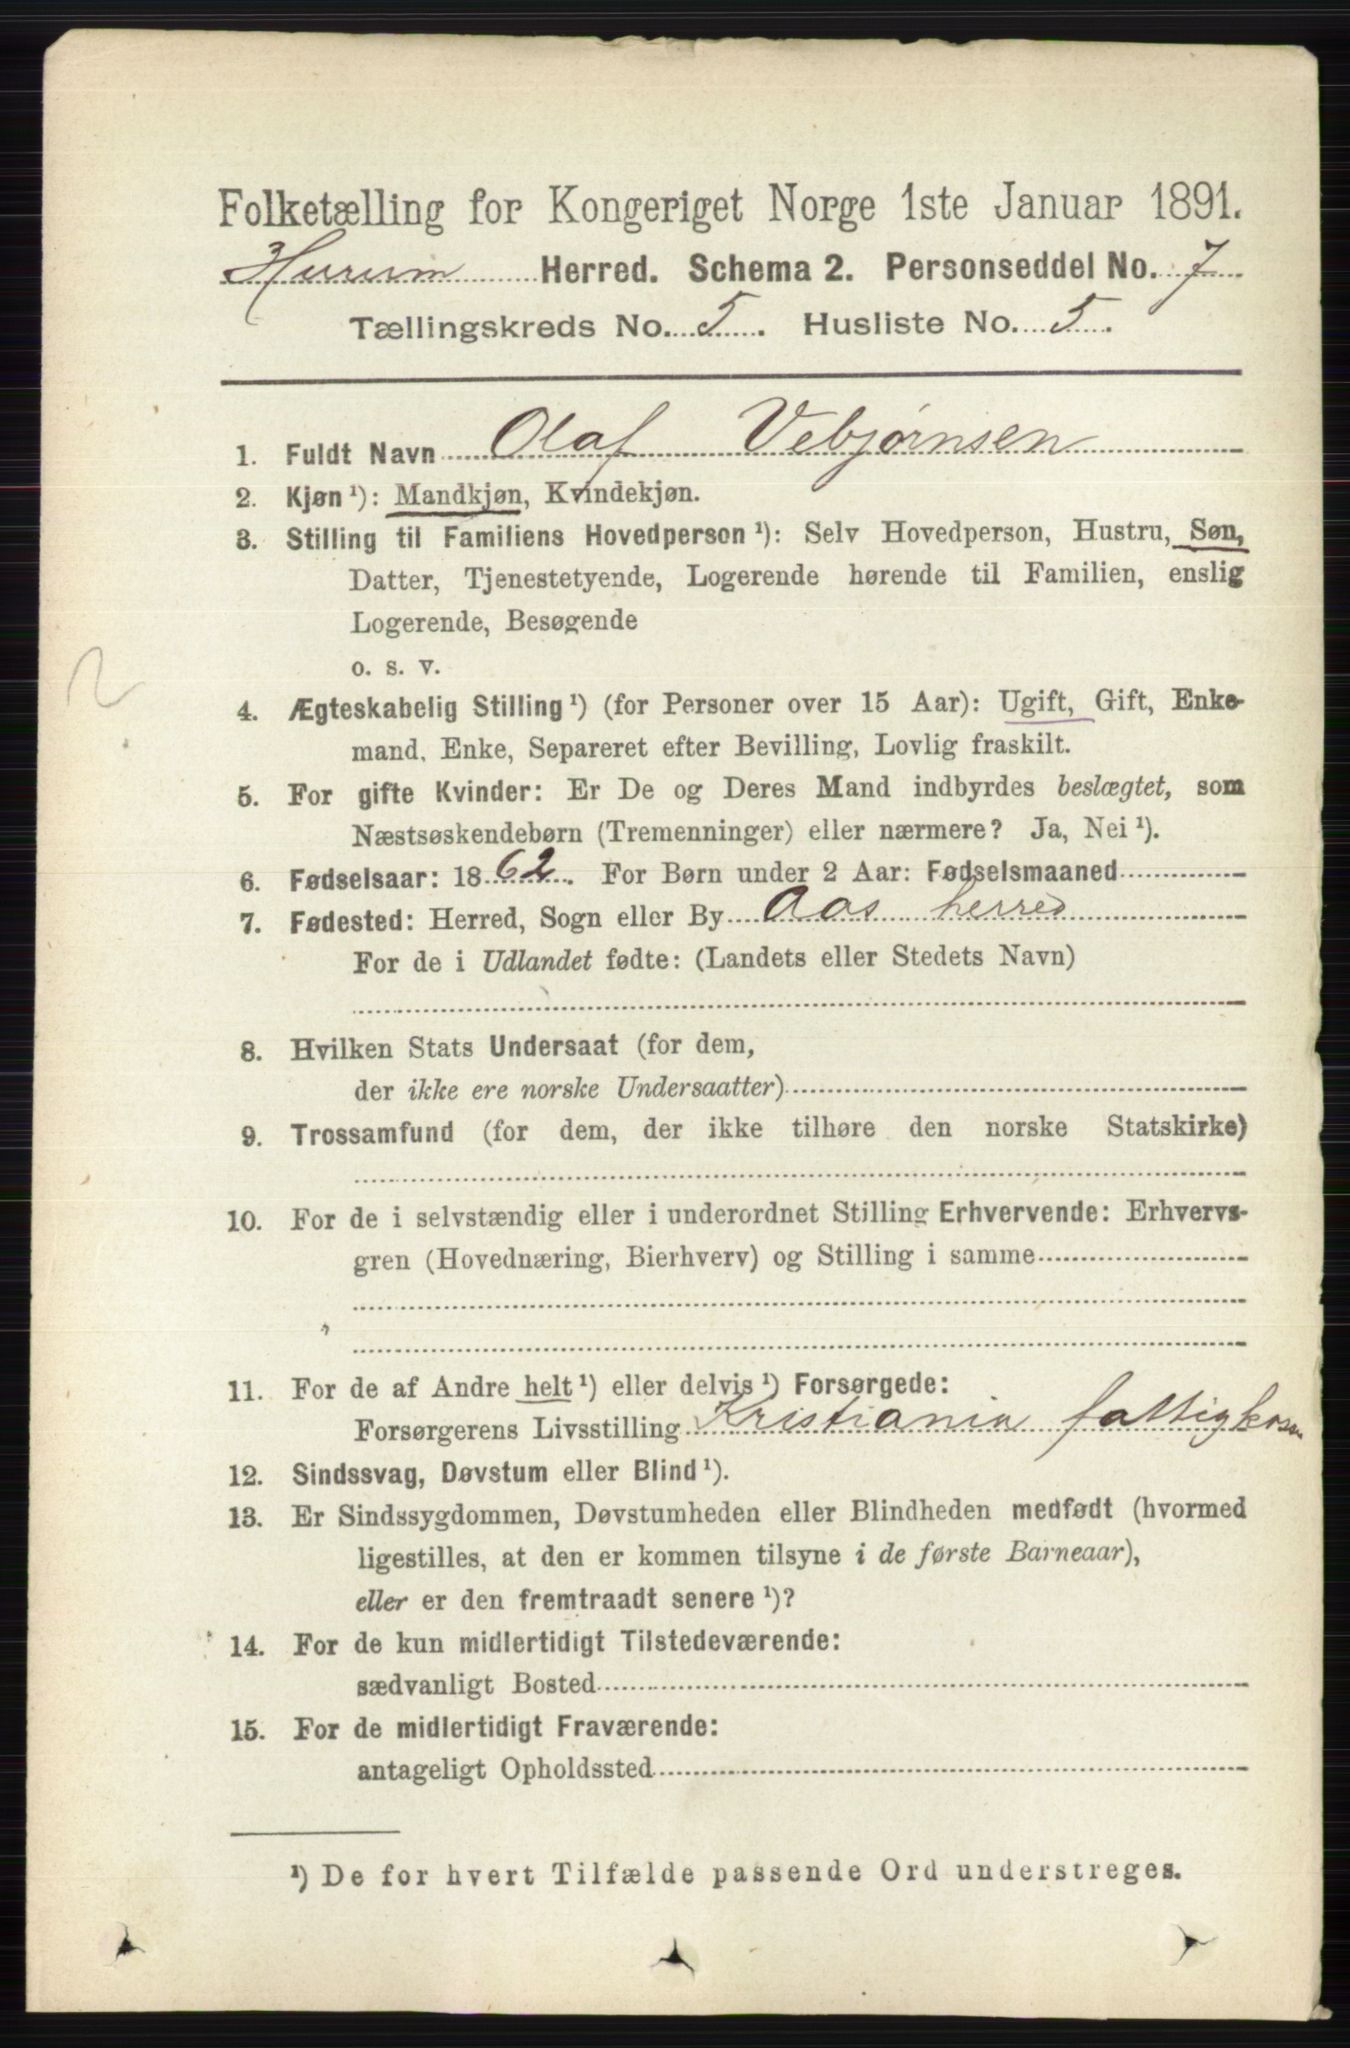 Folketælling for Kongeriget Norge 1ste Januar 1891.
Hurum Herred. Schema 2. Personseddel No. 7
Tællingskreds No. 5. Husliste No. 5.
1. Fuldt Navn Olaf Vebjørnsen
2. Kjøn ¹): Mandkjøn, Kvindekjøn.
3. Stilling til Familiens Hovedperson ¹): Selv Hovedperson, Hustru, Søn,
Datter, Tjenestetyende, Logerende hørende til Familien, enslig
Logerende, Besøgende
o. s. v.
2
4. Ægteskabelig Stilling ¹) (for Personer over 15 Aar): Ugift, Gift, Enke-
mand, Enke, Separeret efter Bevilling, Lovlig fraskilt.
5. For gifte Kvinder: Er De og Deres Mand indbyrdes beslægtet, som
Næstsøskendebørn (Tremenninger) eller nærmere? Ja, Nei ¹).
6. Fødselsaar: 1862. For Børn under 2 Aar: Fødselsmaaned
7. Fødested: Herred, Sogn eller By Aas herred
For de i Udlandet fødte: (Landets eller Stedets Navn)
8. Hvilken Stats Undersaat (for dem,
der ikke ere norske Undersaatter)
9. Trossamfund (for dem, der ikke tilhøre den norske Statskirke)
10. For de i selvstændig eller i underordnet Stilling Erhvervende: Erhvervs-
gren (Hovednæring, Bierhverv) og Stilling i samme
11. For de af Andre helt ¹) eller delvis ¹) Forsørgede:
Forsørgerens Livsstilling Kristiania fattigkasse
12. Sindssvag, Døvstum eller Blind ¹).
13. Er Sindssygdommen, Døvstumheden eller Blindheden medfødt (hvormed
ligestilles, at den er kommen tilsyne i de første Barneaar),
eller er den fremtraadt senere ¹)?
14. For de kun midlertidigt Tilstedeværende:
sædvanligt Bosted
15. For de midlertidigt Fraværende:
antageligt Opholdssted
¹) De for hvert Tilfælde passende Ord understreges.